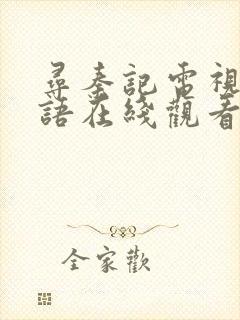 尋秦記電視
語在綫觀看
全家歡